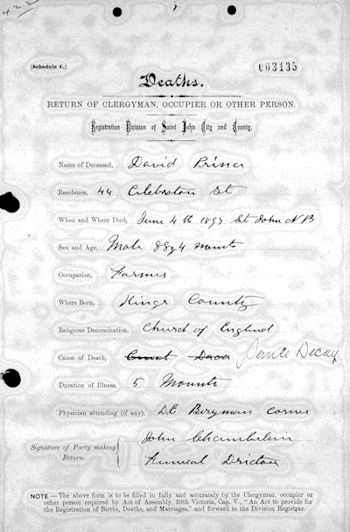 422
[Schedule C.] 003135
Deaths.
RETURN OF CLERGYMAN, OCCUPIER OR OTHER PERSON.
Registration Division of Saint John City and County.
Name of Deceased, David
Residence, 44 St
When and Where Died, June 4th 1897 St John NB
Sex and Age, Male 88 & 4 mounts
Occupation, Farmer
Where Born, Kings County
Religious Denomination, Church of England
Cause of Death, Senile Decay
Duration of Illness, 5 Mounts
Physician attending (if any), Dr Berryman
John Chamberlain
Signature of Party making
Return. Funeral Director
NOTE—The above form is to be filled in fully and accurately by the Clergyman, occupier or
other person required by Act of Assembly, 50th Victoria, Cap. V., "An Act to provide for
the Registration of Births, Deaths, and Marriages," and forward to the Division Registrar.